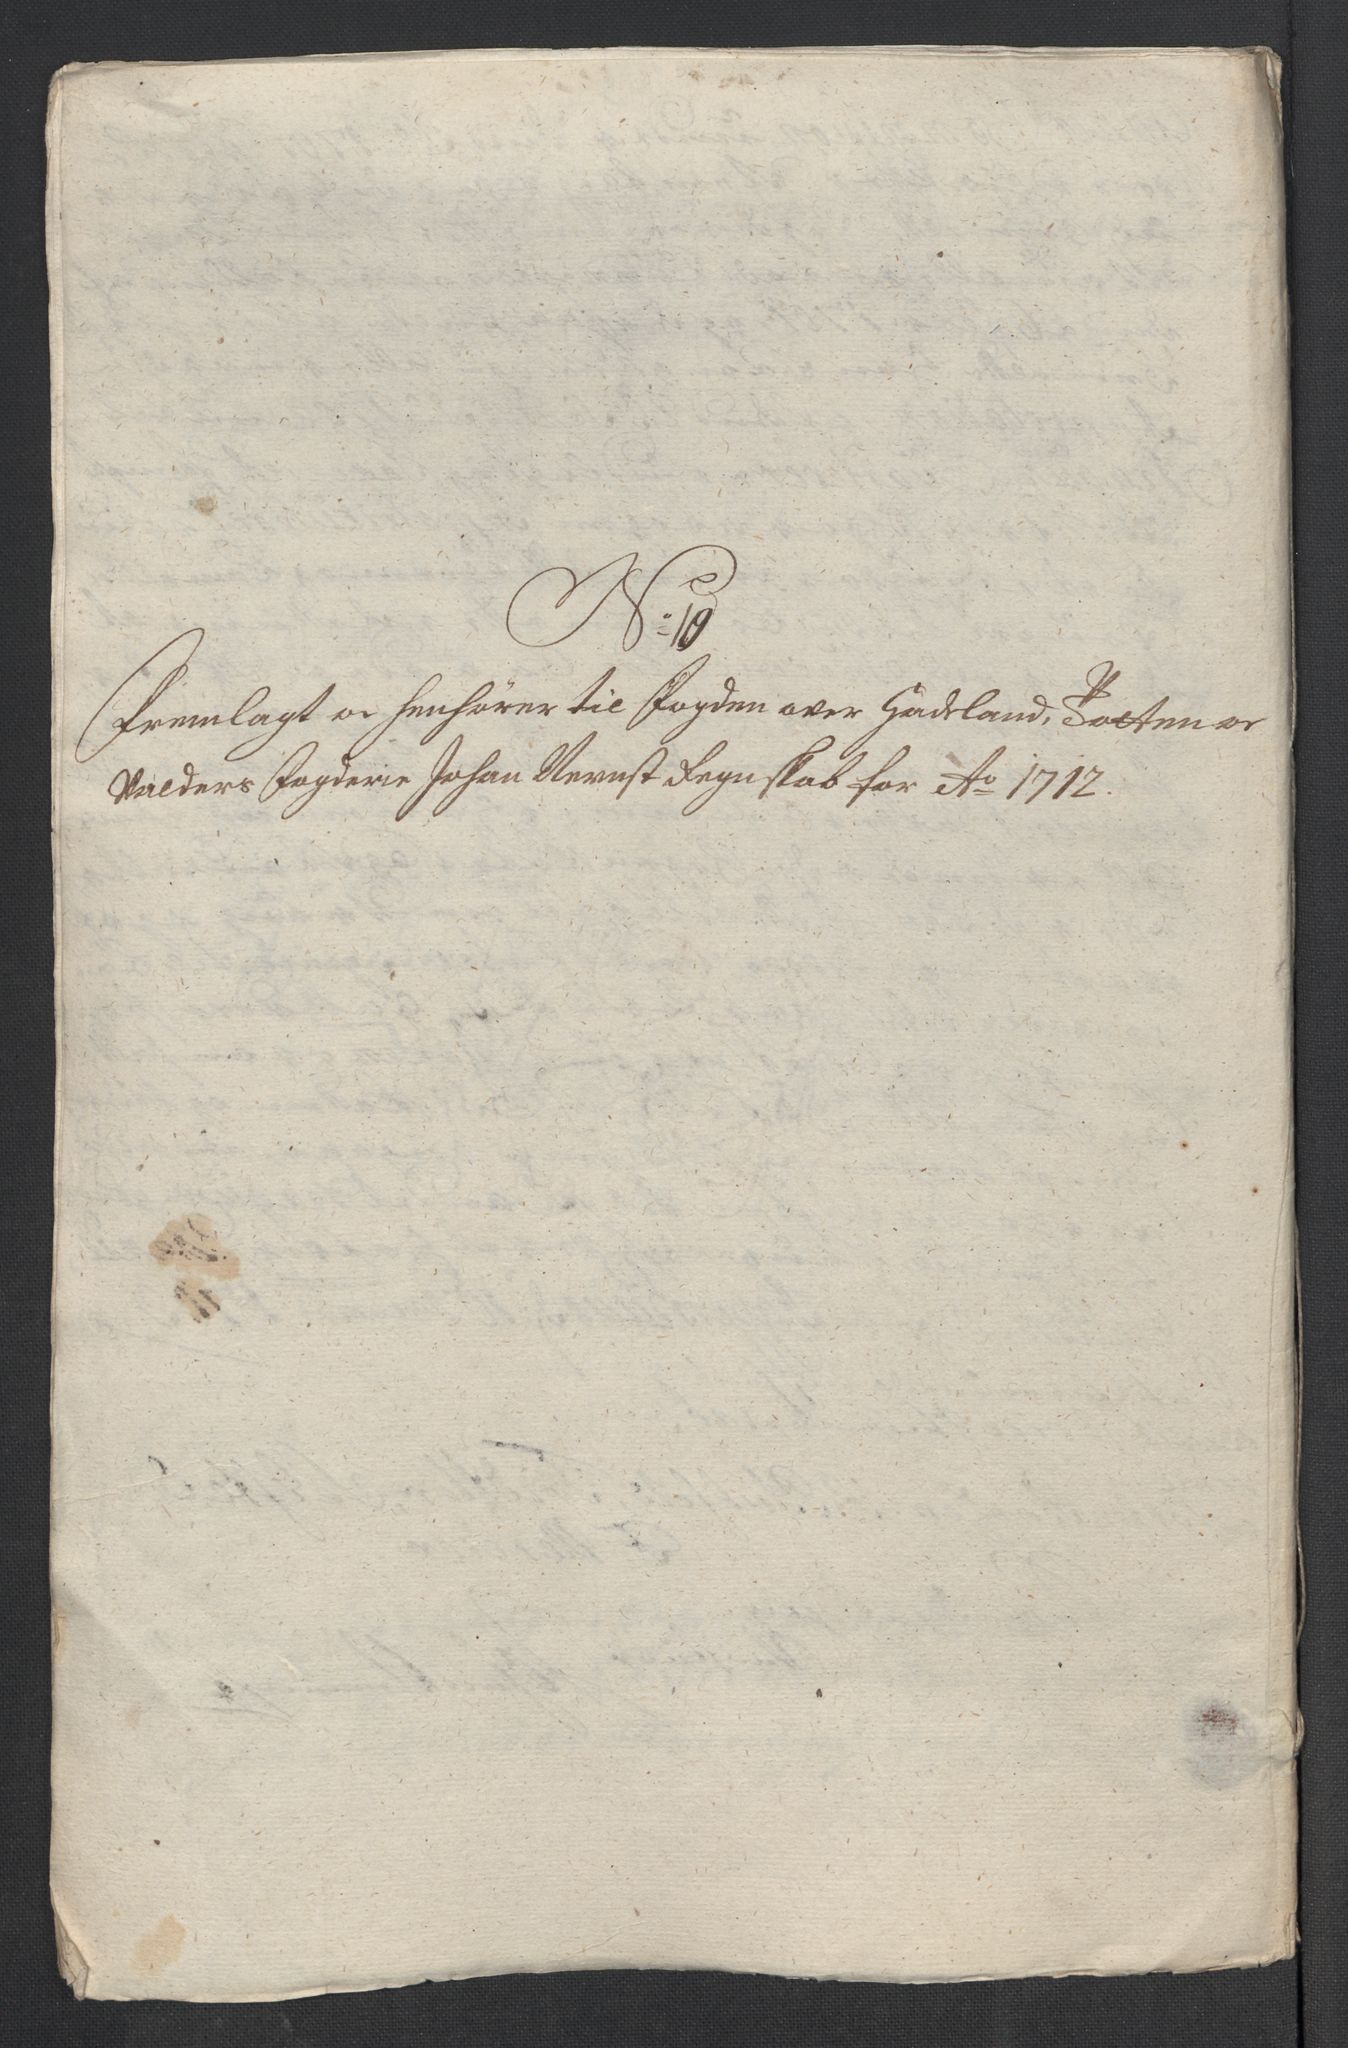 No: 19
Fremlagt oc henhörer til Fogden over Hadeland, Totten oc
Valders Fogderie Johan Nernst Regnskab for Ao 1712.